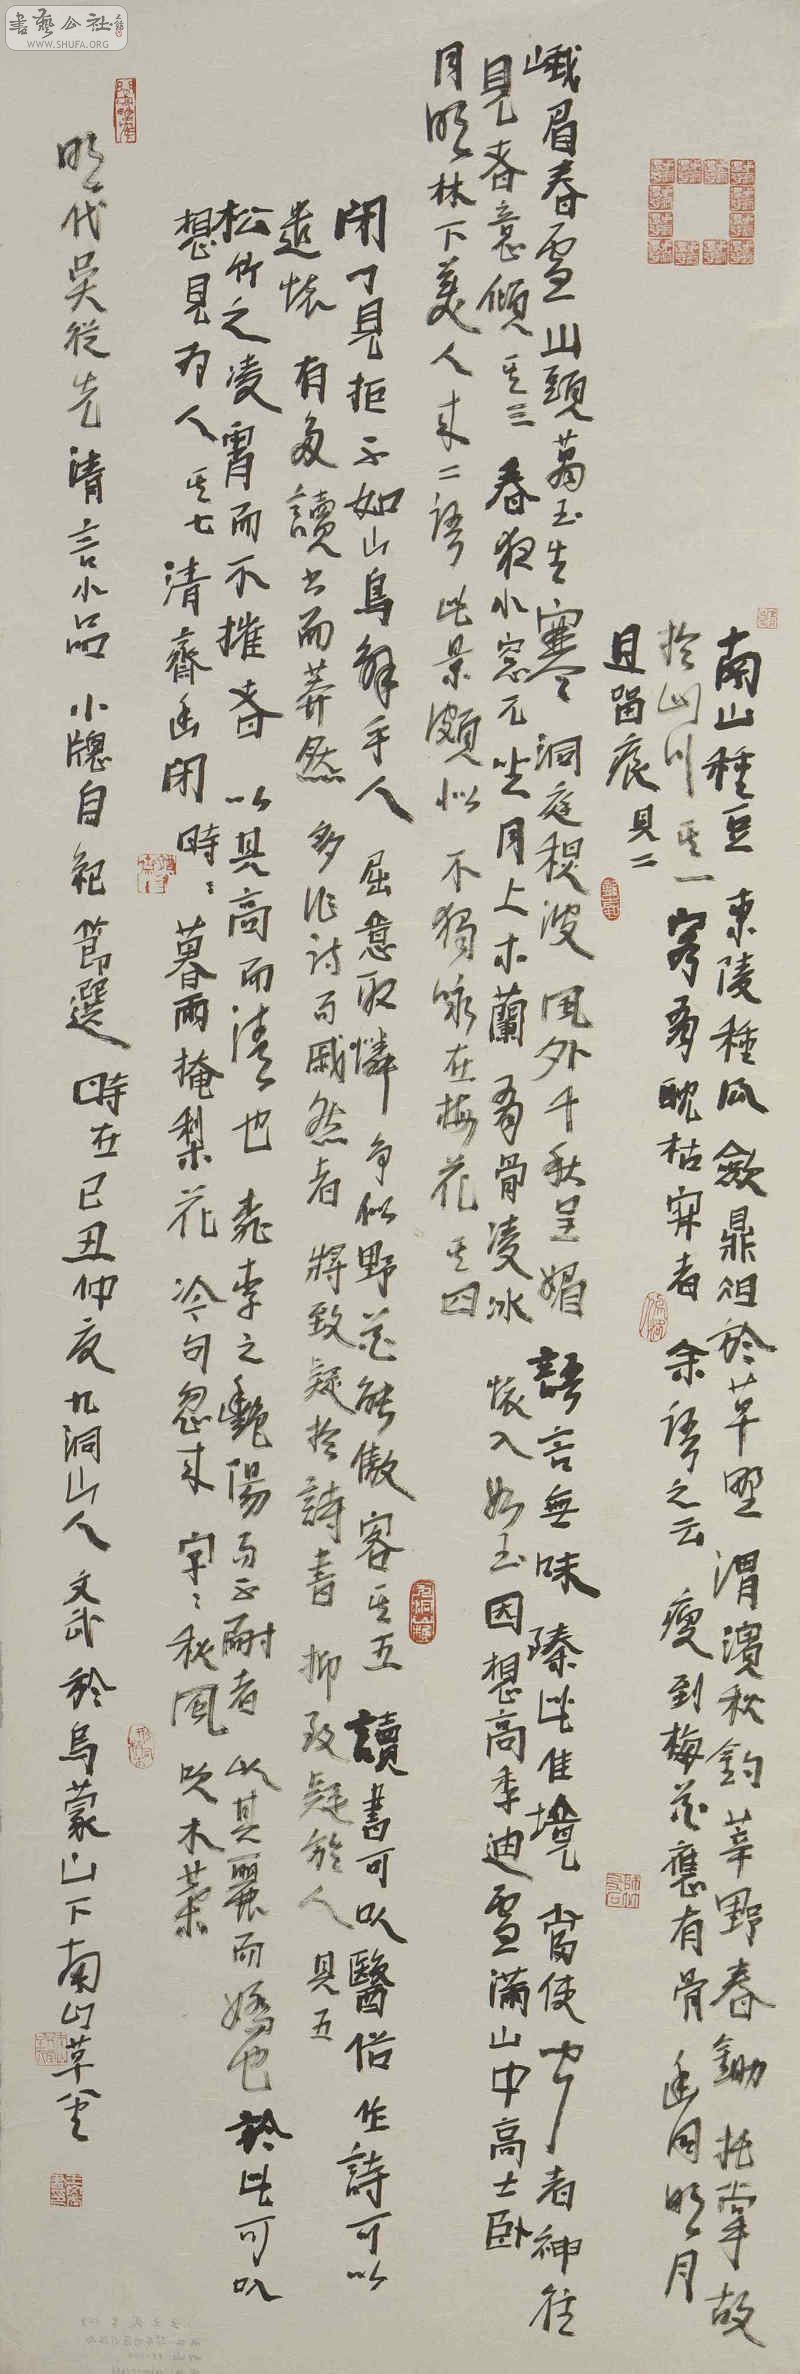 書藝公社
WWW.SHUFA.ORG
南山種豆 東陵種瓜 歛鼎俎於草野 渭濱秋釣 莘野春鋤 托掌故
於山川 其一 客有耽枯寂者 余語之云 瘦到梅花應有骨 幽同明月
且留痕 其二
峨眉春雪 山頭萬玉生寒 洞庭積波 風外千秋呈媚 語言無味 臻此佳境 當使聞者神往
見者意傾 其三 春夜小窓兀坐 月上木蘭 有骨凌冰 懷人如玉 因想高季迪 雪滿山中高士臥
月明林下美人來二語 此景頗似 不獨咏在梅花 其四
閉門見拒 不如山鳥解手人 屈意取憐 爭似野花能傲客 其五 讀書可以醫俗 作詩可以
遣懷 有多讀書而莽然 多作詩而戚然者 將致疑於詩書 抑致疑於人 其五
松竹之凌霄而不摧者 以其高而清也 桃李之艷陽而不耐者 以其麗而嬌也 於此可以
想見有人 其七 清齋幽閉 時時暮雨掩梨花 冷句忽來 字字秋風吹木葉
明代吳從先清言小品 小牕自紀節選 時在己丑仲夏 九洞山人 文武於烏蒙山下南山草堂